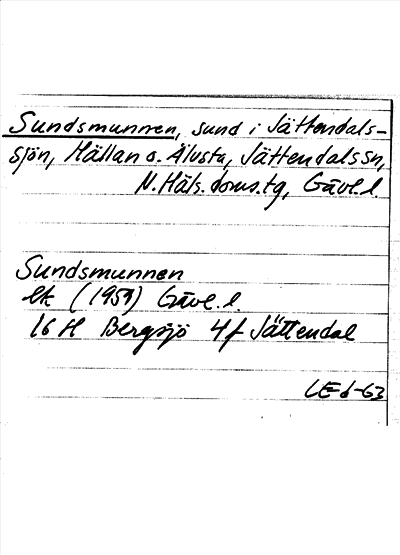 Sundsmunnen, sund i Jättendals-
sjön, Hällan o. Älvsta, Jättendals sn,
N. Häls. doms. tg, Gävl. l.
Sundsmunnen
Ek (1959) Gävl. l.
16 H Bergsjö 4f Jättendal
LE d-63